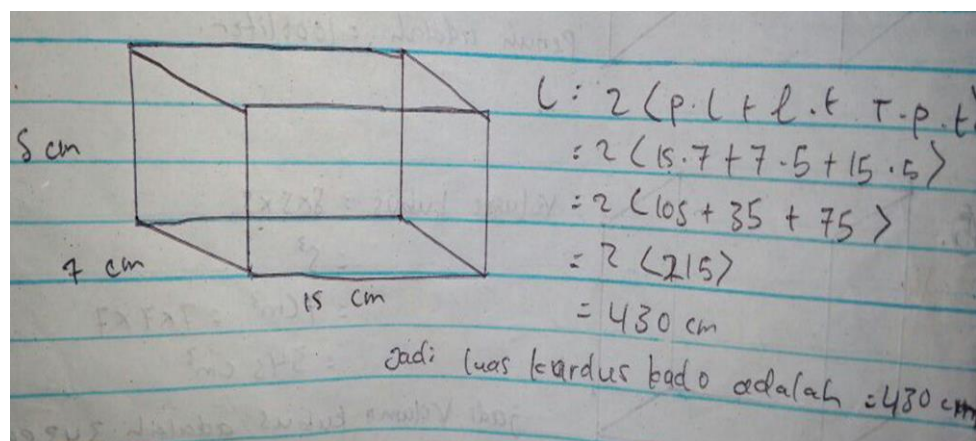 5 cm
7 cm
15 cm
L = 2 (p.l + l.t + p.t)
= 2 (15.7 + 7.5 + 15.5)
= 2 (105 + 35 + 75)
= 2 (215)
= 430 cm
Jadi luas kardus kado adalah = 430 cm